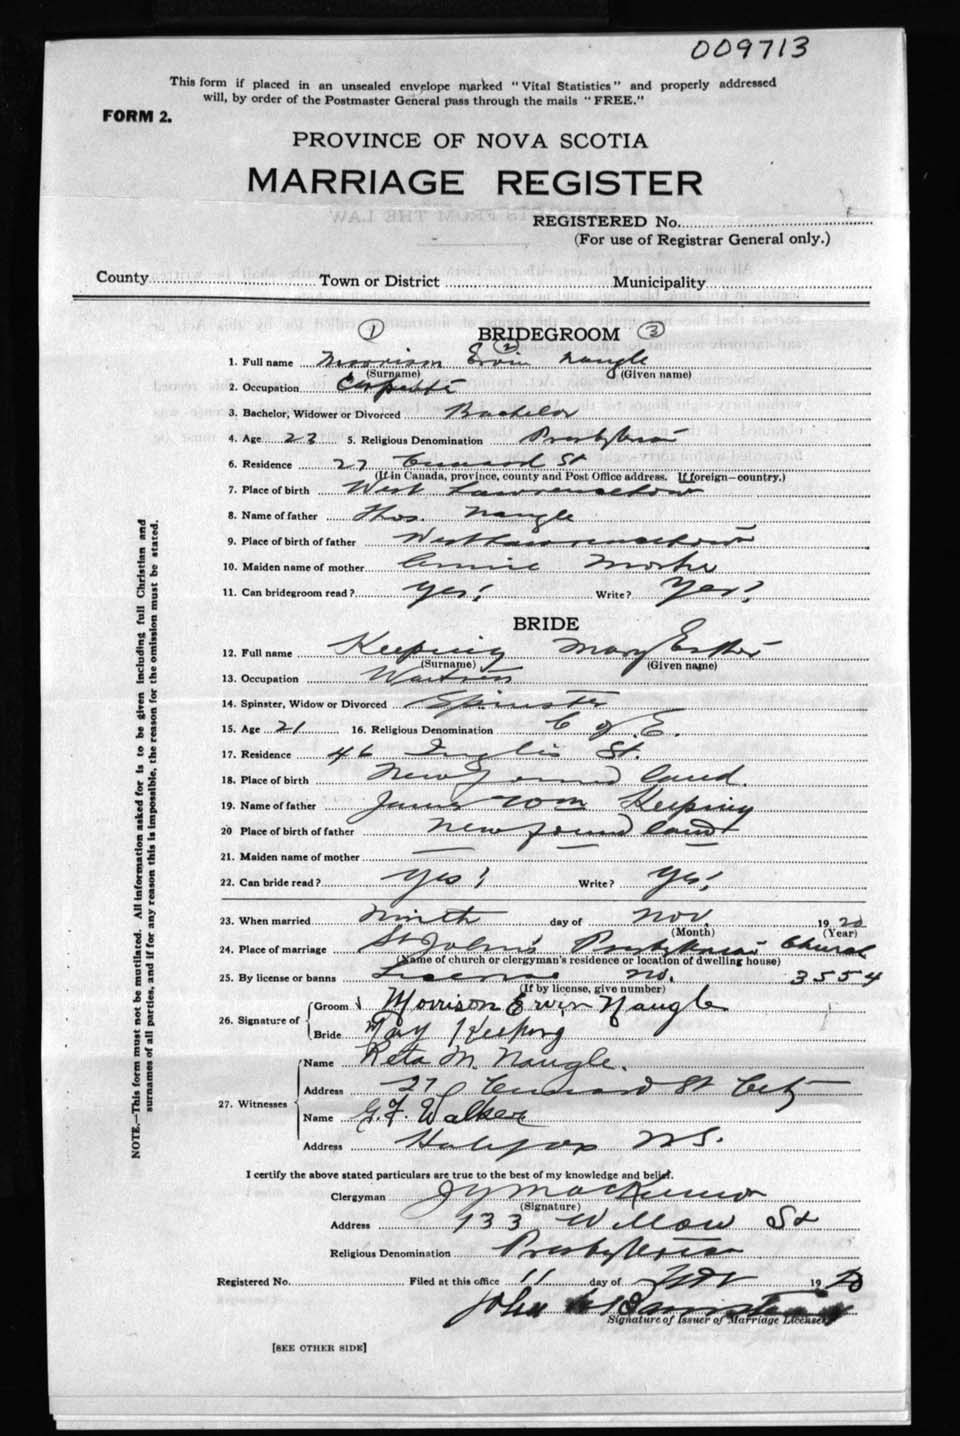 009713
This form if placed in an unsealed envelope marked "Vital Statistics" and properly addressed
will, by order of the Postmaster General pass through the mails "FREE."
FORM 2.
PROVINCE OF NOVA SCOTIA
MARRIAGE REGISTER
REGISTERED No.
(For use of Registrar General only.)
County Town or District Municipality
1 BRIDEGROOM 3
2
1. Full name Morrison Ervin Naugle
(Surname) (Given name)
2. Occupation
3. Bachelor, Widower or Divorced Bachelor
4. Age 23 5. Religious Denomination Presbyterian
6. Residence 27 Cunard St
(If in Canada, province, county and Post Office address. If foreign—country.)
7. Place of birth West Lawrencetown
8. Name of father Thos. Naugle
9. Place of birth of father West Lawrencetown
10. Maiden name of mother Annie
11. Can bridegroom read? Yes! Write? Yes!
BRIDE
12. Full name Keeping Mary Esther
(Surname) (Given name)
13. Occupation Waitress
14. Spinster, Widow or Divorced Spinster
15. Age 21 16. Religious Denomination C of E.
17. Residence 46 Inglis St.
18. Place of birth Newfoundland.
19. Name of father James Wm Keeping
20 Place of birth of father Newfoundland
21. Maiden name of mother — — —
22. Can bride read? Yes! Write? Yes!
23. When married Ninth day of Nov. 1920
(Month) (Year)
24. Place of marriage St John's Presbyterian Church
(Name of church or clergyman's residence or location of dwelling house)
25. By license or banns License no. 3554
(If by license, give number)
26. Signature of Groom Morrison Ervin Naugle
Bride May Keeping
27. Witnesses Name Reta M. Naugle.
Address 27 Cunard St City
Name G.F. Walker
Address Halifax N.S.
I certify the above stated particulars are true to the best of my knowledge and belief.
Clergyman
(Signature)
Address 133 Willow St
Religious Denomination Presbyterian
Registered No. Filed at this office 11 day of Nov 1920
John
Signature of Issuer of Marriage Licenses
[SEE OTHER SIDE]
NOTE.—This form must not be mutilated. All information asked for is to be given including full Christian and
surnames of all parties, and if for any reason this is impossible, the reason for the omission must be stated.